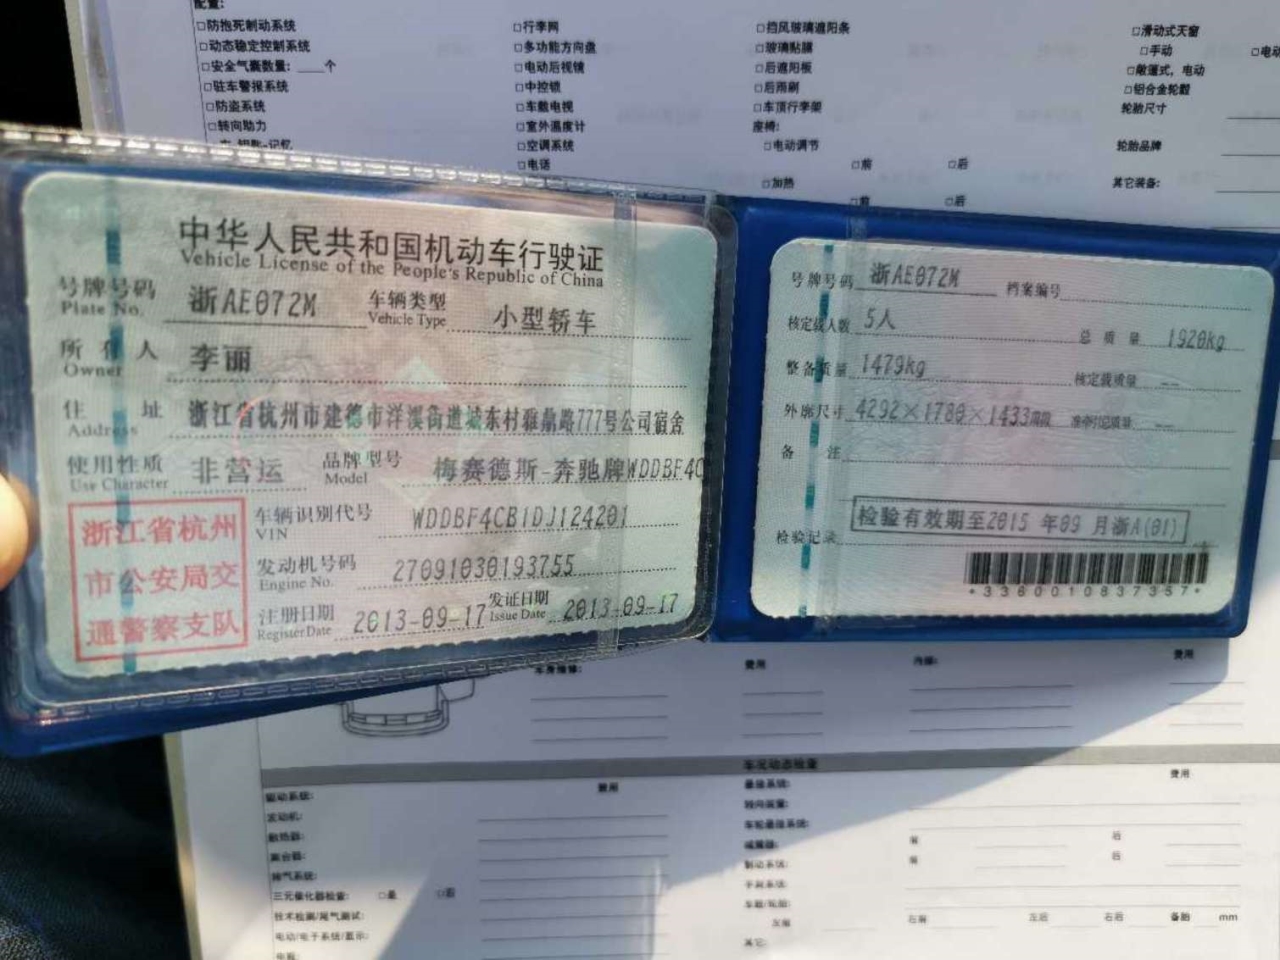 配置:
□防抱死制动系统 □行李网 □挡风玻璃遮阳条 □滑动式天窗
□动态稳定控制系统 □多功能方向盘 □玻璃贴膜 □手动 □电动
□安全气囊数量: ____个 □电动后视镜 □后遮阳板 □敞篷式，电动
□驻车警报系统 □中控锁 □后雨刷 □铝合金轮毂
□防盗系统 □车载电视 □车顶行李架 轮胎尺寸
□转向助力 □室外温度计 座椅:
□空调系统 □电动调节 轮胎品牌
□电话 □前 □后
□加热 其它装备:
□前 □后
中华人民共和国机动车行驶证
Vehicle License of the People's Republic of China
号牌号码 浙AE072M 车辆类型 小型轿车
Plate No. Vehicle Type
所有人 李丽
Owner
住址 浙江省杭州市建德市洋溪街道城东村雅鼎路777号公司宿舍
Address
使用性质 非营运 品牌型号 梅赛德斯-奔驰牌WDDBF4C
Use Character Model
浙江省杭州
市公安局交
通警察支队
车辆识别代号 WDDBF4CB1DJ124201
VIN
发动机号码 27091030193755
Engine No.
注册日期 2013-09-17 发证日期 2013-09-17
Register Date Issue Date
号牌号码 浙AE072M 档案编号
核定载人数 5人 总质量 1920kg
整备质量 1479kg 核定载质量 --
外廓尺寸 4292×1780×1433 准牵引总质量 --
备注
检验记录 检验有效期至2015年09月浙A(01)
*3360010837357*
车身维修: 费用 内部: 费用
车况动态检查
费用 费用
驱动系统:
发动机:
散热器:
排气系统: 制动系统:
三元催化器检查: □是 □否
技术检测/尾气测试:
电动/电子系统/显示:
左前 右前 左后 右后 备胎 mm
其它: